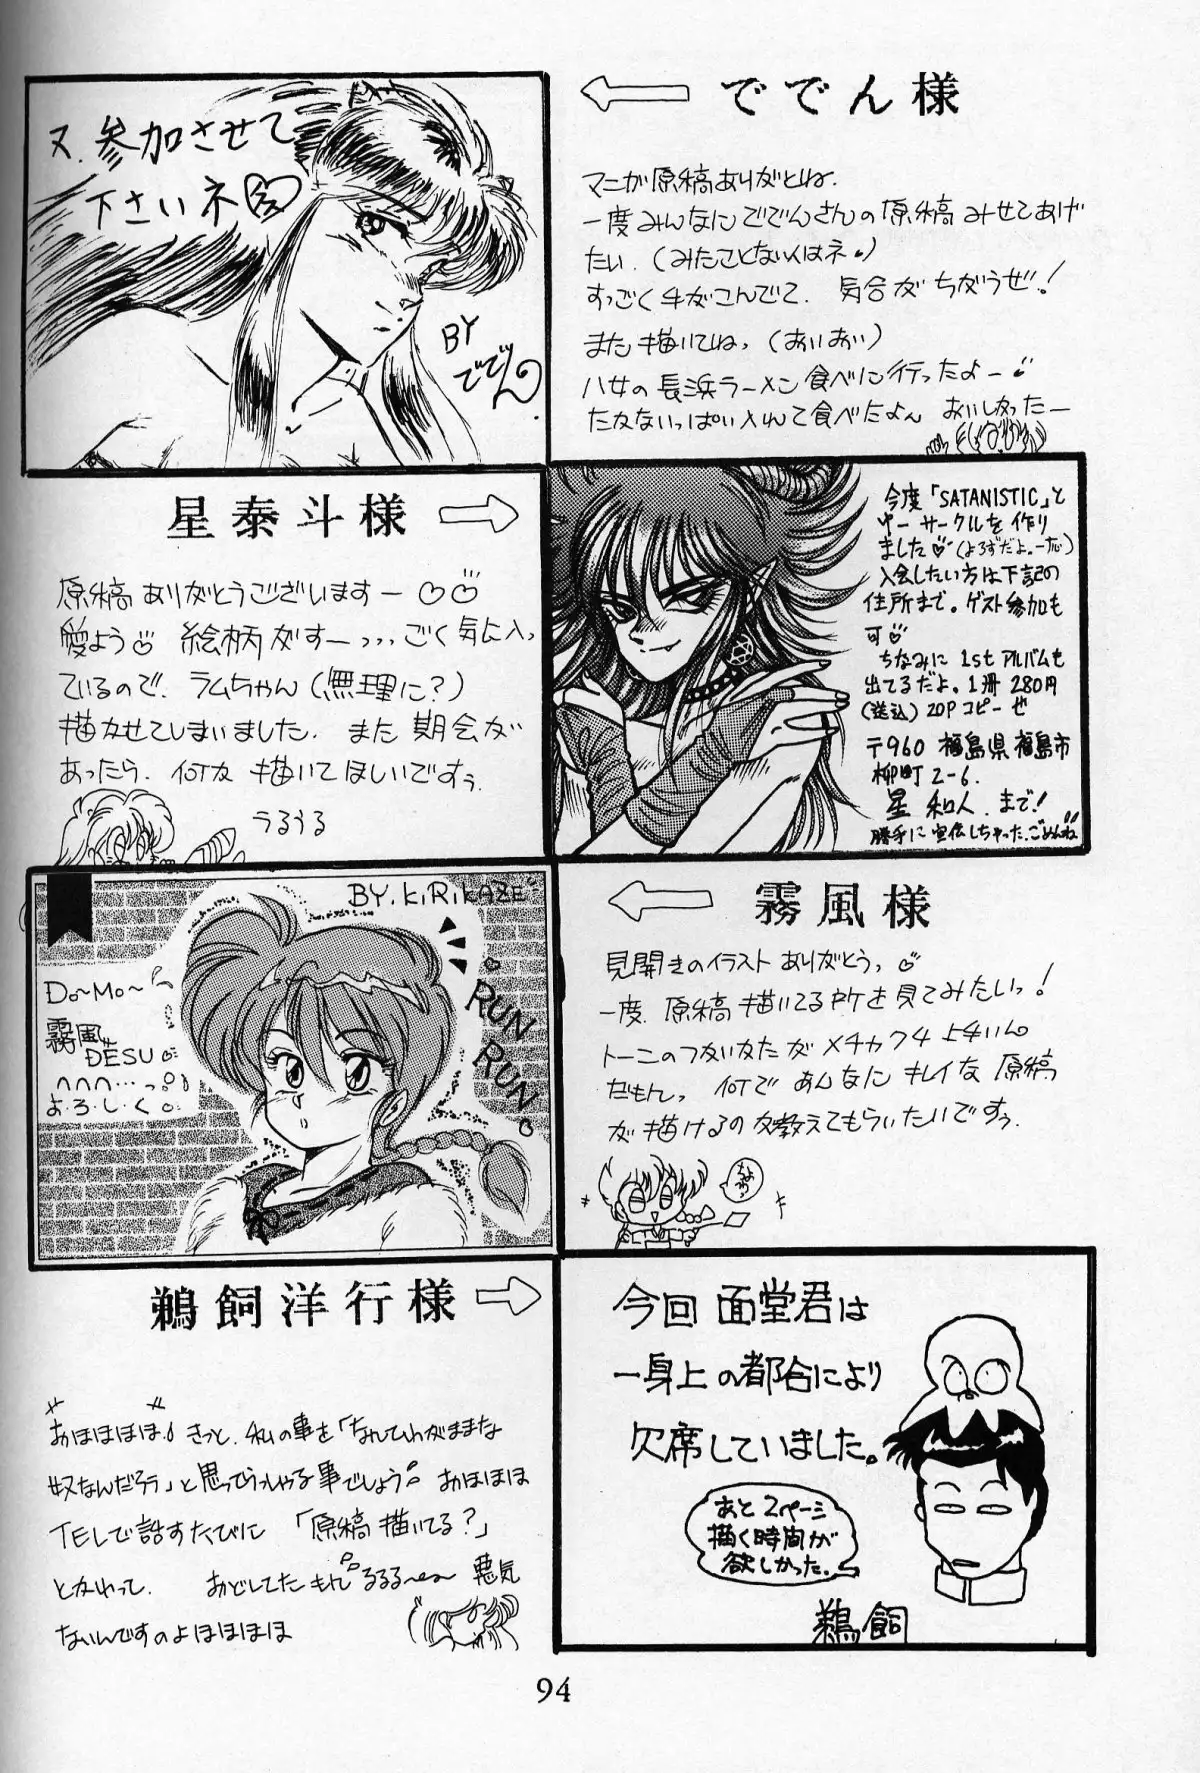 ででん様
マニが原稿ありがとね.
一度みんなにででんさんの原稿みせてあげ
たい.(みたことない人はネ)
すっごく手がこんでて. 気合がちがうぜ!
また描いてね,(おいおい)
八女の長浜ラーメン食べに行ったよー
たかないっぱい入れて食べたよん おいしかったー
又.参加させて
下さいネ
BY
ででん
星泰斗様
原稿ありがとうございますー♡♡
愛よう♡ 絵柄がすーっっっごく気に入っ
ているので. ラムちゃん(無理に?)
描かせてしまいました. また期会が
あったら. 何か描いてほしいですぅ.
うるうる
今度「SATANISTIC」と
ゆーサークルを作り
ました♡(よろずだよ.一応)
入会したい方は下記の
住所まで。ゲスト参加も
可♡
ちなみに 1stアルバムも
出てるだよ。1冊280円
(送込)20Pコピーぜ
〒960 福島県福島市
柳町2-6.
星 和人.まで!
勝手に宣伝しちゃった.ごめんね
霧風様
見開きのイラストありがとうっ♡
一度.原稿描いてるトケを見てみたいっ!
トーンのつかいかたがメチャクチャ上手いん
だもんっ 何であんなにキレイな原稿
が描けるのか教えてもらいたいですぅ.
BY.KIRIKAZE
DO~MO~
霧風
DESU
へへへ…っ
よ・ろ・し・く
RUN
RUN
鵜飼洋行様
おほほほほ♪きっと.私の事を「なんてわがままな
奴なんだろう」と思ってらっしゃる事でしょう おほほほ
TELで話すたびに 「原稿描いてる?」
とかゆって. おどしてたもん るるる~ 悪気
ないんですのよほほほほ
今回 面堂君は
一身上の都合により
欠席していました。
あと2ページ
描く時間が
欲しかった.
鵜飼
94